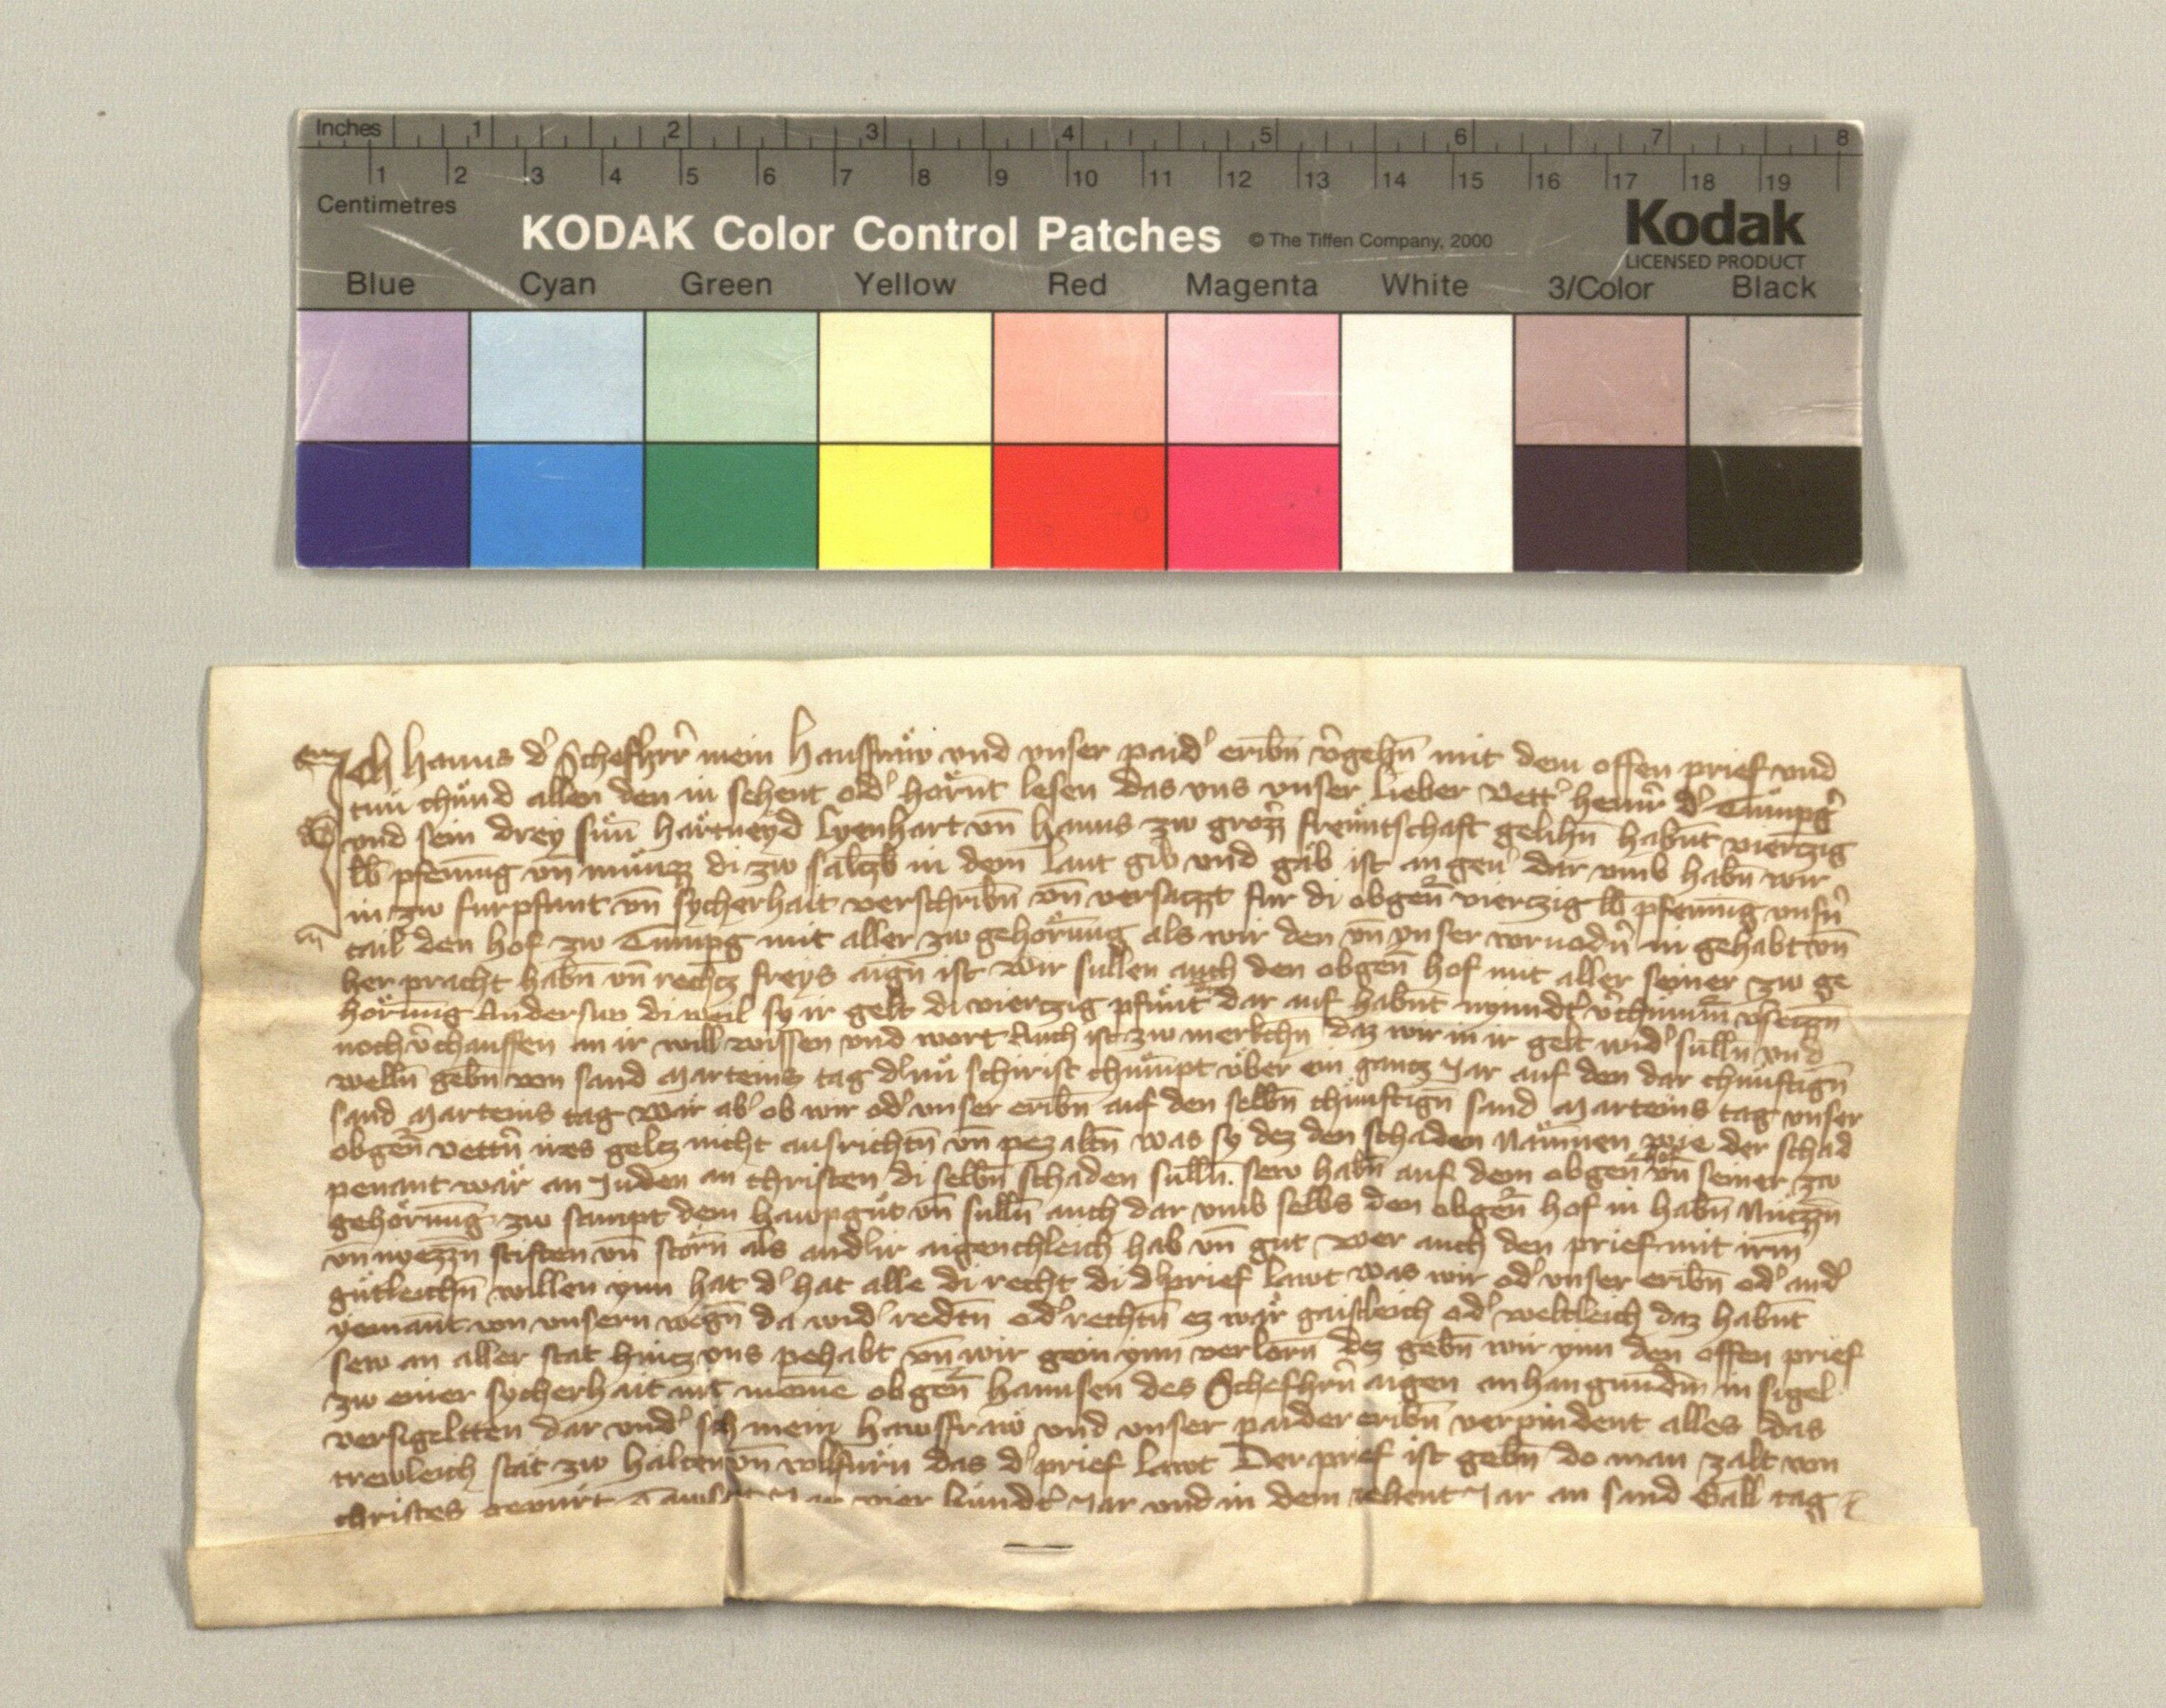 Inches 1 2 3 4 5 6 7 8
1 2 3 4 5 6 7 8 9 10 11 12 13 14 15 16 17 18 19
Centimetres
KODAK Color Control Patches © The Tiffen Company, 2000 Kodak
LICENSED PRODUCT
Blue Cyan Green Yellow Red Magenta White 3/Color Black
Ich Hanns dʼ mein Hausfraw vnd vnser paidʼ eribn̄ mit dem offen prief vnd
tun chund allen den in sehent odʼ hörnt lesen das vns vnser lieber vettʼ dʼ
vnd sein drey sün hartneyd lyenhart vn̄ hanns zw grozz frewntschaft gelihn̄ habnt vierczig
lb pfenning vn̄ münzz di zw salczb in dem lant gib vnd gäb ist an gen dar vmb habn̄ wir
in zw furpfant vn̄ sycherhait verschribn̄ vn̄ versaczt für di obgen̄ vierczig lb pfenning
tail den hof zw mit aller zw gehorung als wir den vn̄ vnser in gehabt vn̄
her pracht habn̄ vn̄ rechcz freys aign̄ ist wir sullen auch den obgen̄ hof mit aller seiner zw ge
hörung di weil sy ir gelt di vierczig pfunt dar auf habnt
noch vʼchauffen an ir will wissen vnd wort Auch ist zw merkchn̄ daz wir in ir gelt widʼ sulln̄ vnd
welln̄ gebn̄ von sand marteins tag dʼ nu schirist chümpt vber ein gancz Jar auf den dar chünftign̄
sand marteins tag wär abʼ ob wir odʼ vnser eribn̄ auf den selbn̄ chünftign̄ sand marteins tag vnser
obgen̄ vettn̄ ires gelcz nicht ausrichtn̄ vn̄ pezaltn̄ was sy dez den schaden nämen wie der schad
penant wär an Juden an christen di selbn̄ schaden sulln̄ sew habn̄ auf dem obgen̄ hof vn̄ seiner zw
gehörung zw sampt dem hawpgut vn̄ sulln̄ auch dar vmb selbs den obgen̄ hof in habn̄ nüczzn̄
vn̄ nyezzn̄ stiften vn̄ störn̄ als andʼ ir aigenchleich hab vn̄ gut wer auch den prief mit irm̄
gütleichn̄ willen ynn hat dʼ hat alle di recht di dʼ prief lawt was wir odʼ vnser eribn̄ odʼ andʼ
yemant von vnsern wegn̄ da widʼ redtn̄ odʼ rechtn̄ ez wär gaistleich odʼ weltleich daz habnt
sew an aller stat hincz vns pehabt vn̄ wir gein ynn verlorn̄ dez gebn̄ wir ynn den offen prief
zw einer sycherhait mit obgen̄ hannsen des aigen an hangundm̄ in sigel
versigeltten dar vndʼ ich mein hawsfraw vnd vnser paider eribn̄ verpindent alles das
trewleich stät zw halten vn̄ das dʼ prief lawt Der prief ist gebn̄ do man zalt von
christes gepurt Jar vier hundʼt Jar vnd in dem Jar an sand Gall tag